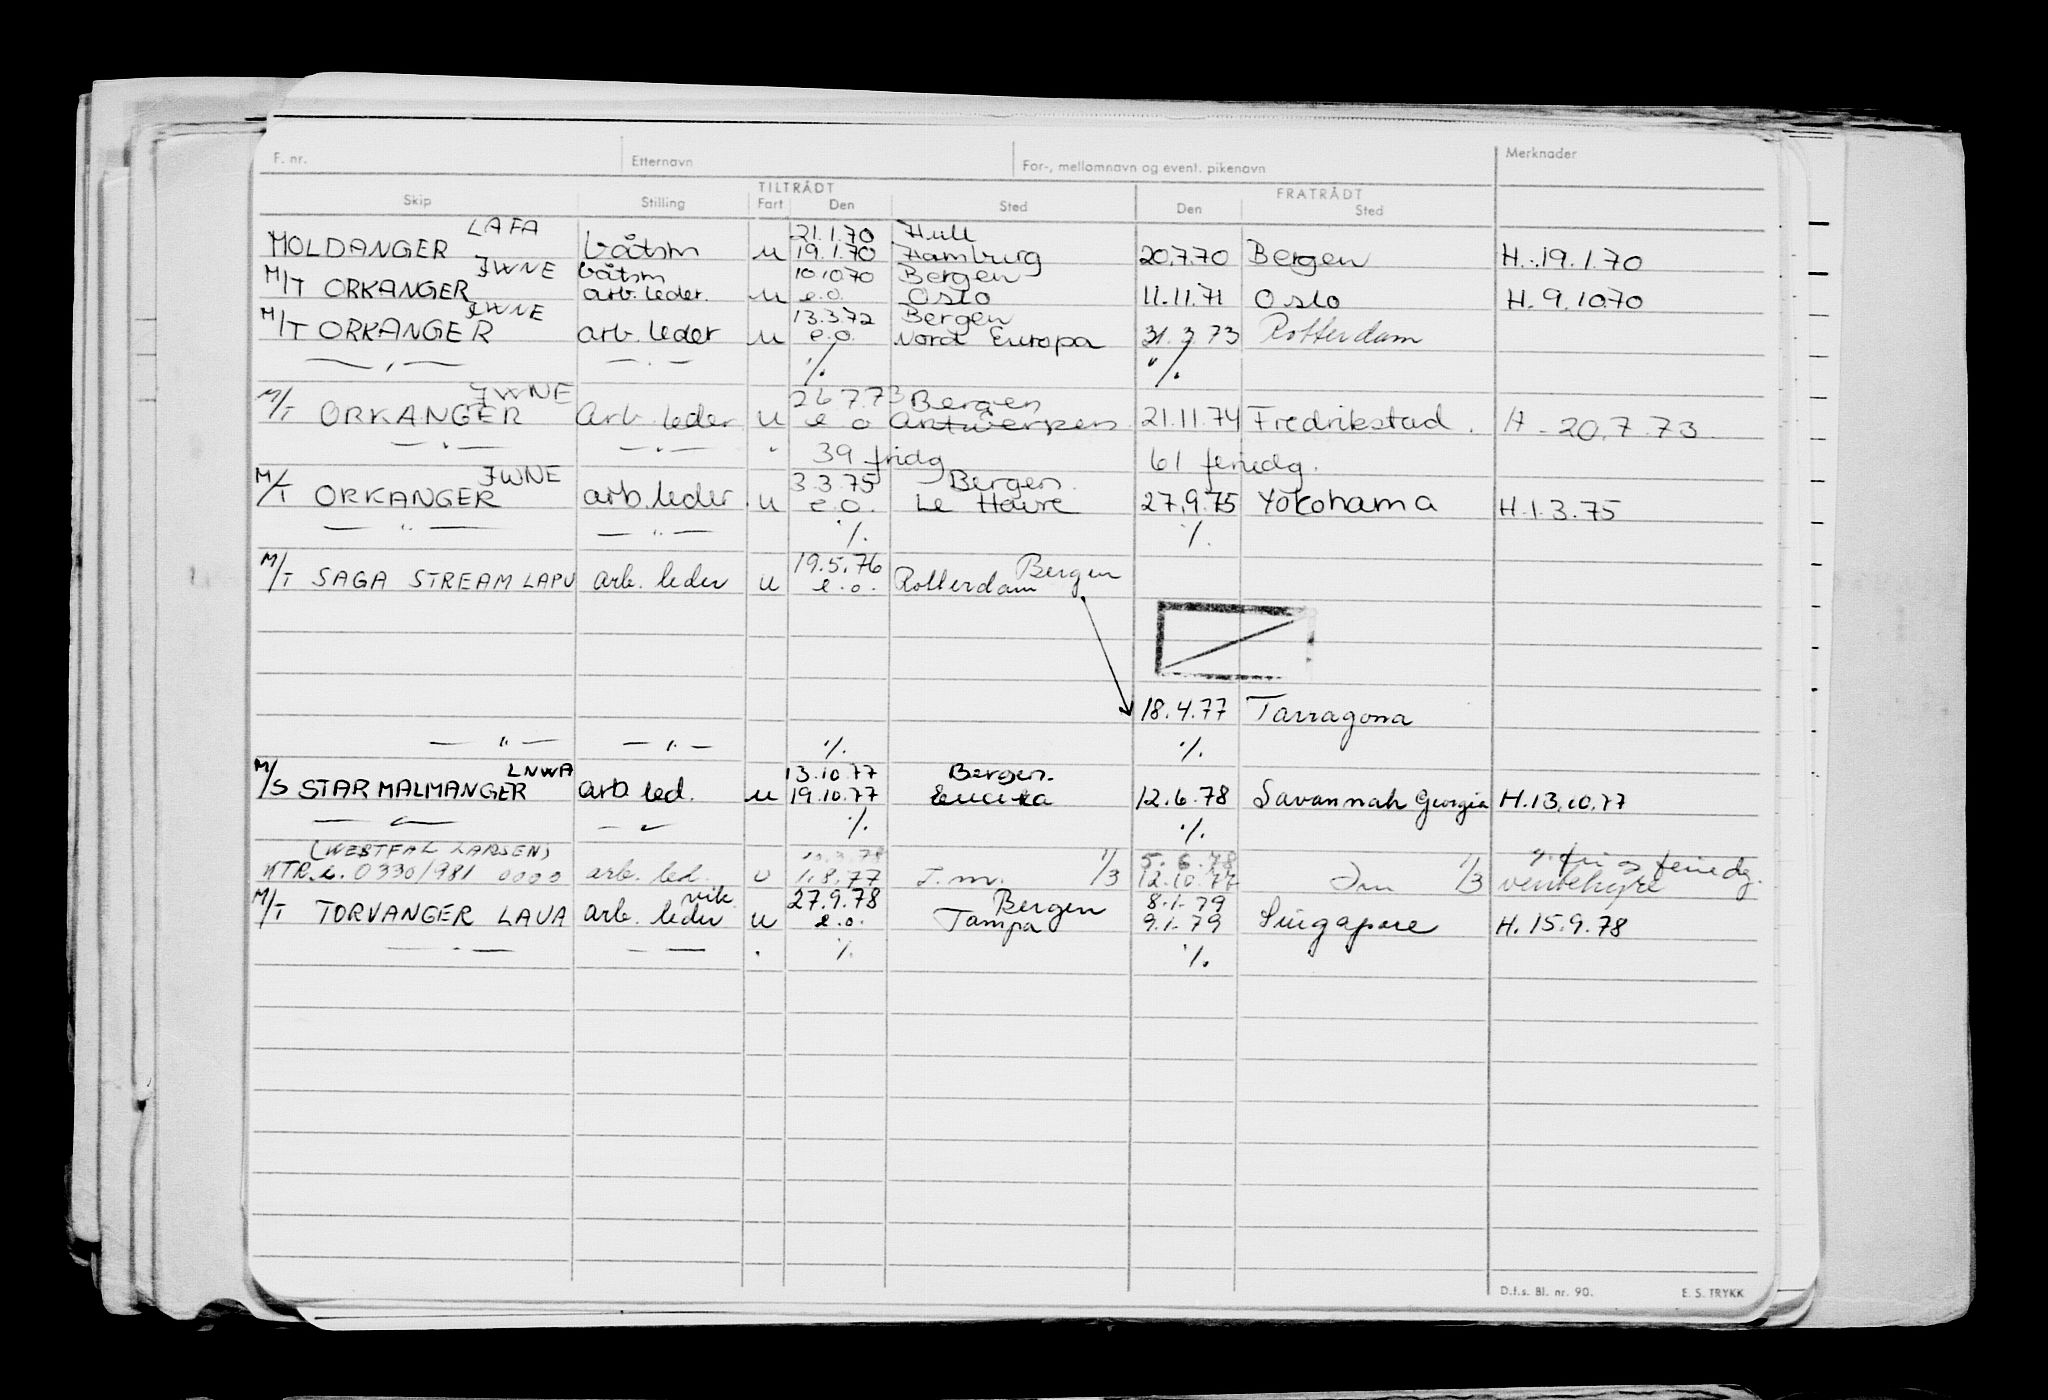 F. nr. Etternavn For-, mellomnavn og event. pikenavn Merknader
TILTRÅDT FRATRÅDT
Skip Stilling Fart Den Sted Den Sted
LAFA 21.1.70 Hull
MOLDANGER båtsm u 19.1.70 Hamburg 20.7.70 Bergen H. 19.1.70
JWNE båtsm 10.10.70 Bergen
M/T ORKANGER arb. leder. u e.o. Oslo 11.11.71 Oslo H. 9.10.70
JWNE 13.3.72 Bergen
M/T ORKANGER arb. leder u e.o. Nord Europa 31.3.73 Rotterdam
— " — — " — % %
JWNE 26.7.73 Bergen
M/T ORKANGER arb. leder u e o Antwerpen 21.11.74 Fredrikstad. H - 20.7.73
— " — — " — " 39 fridg 61 feriedg.
JWNE 3.3.75 Bergen.
M/T ORKANGER arb. leder. u e.o. Le Havre 27.9.75 Yokohama H.1.3.75
— " — — " — % %
19.5.76 Bergen
M/T SAGA STREAM LAPU arb. leder u e.o. Rotterdam
18.4.77 Tarragona
— " — — " — % %
LNWA 13.10.77 Bergen.
M/S STAR MALMANGER arb. led. u 19.10.77 12.6.78 Savannah Georgia H.13.10.77
— " — — " — % %
(WESTFAL LARSEN) 5.6.78 % fri og feriedg.
KTR. 0330/981 0000 arb. led. 1.8.77 I.m. 1/3 12.10.77 1/3 ventehyre
vik. 27.9.78 Bergen 8.1.79
M/T TORVANGER LAVA arb. leder u e.o. Tampa 9.1.79 Singapore H. 15.9.78
— " — — — . % %
D.f.s. Bl. nr. 90. E. S. TRYKK